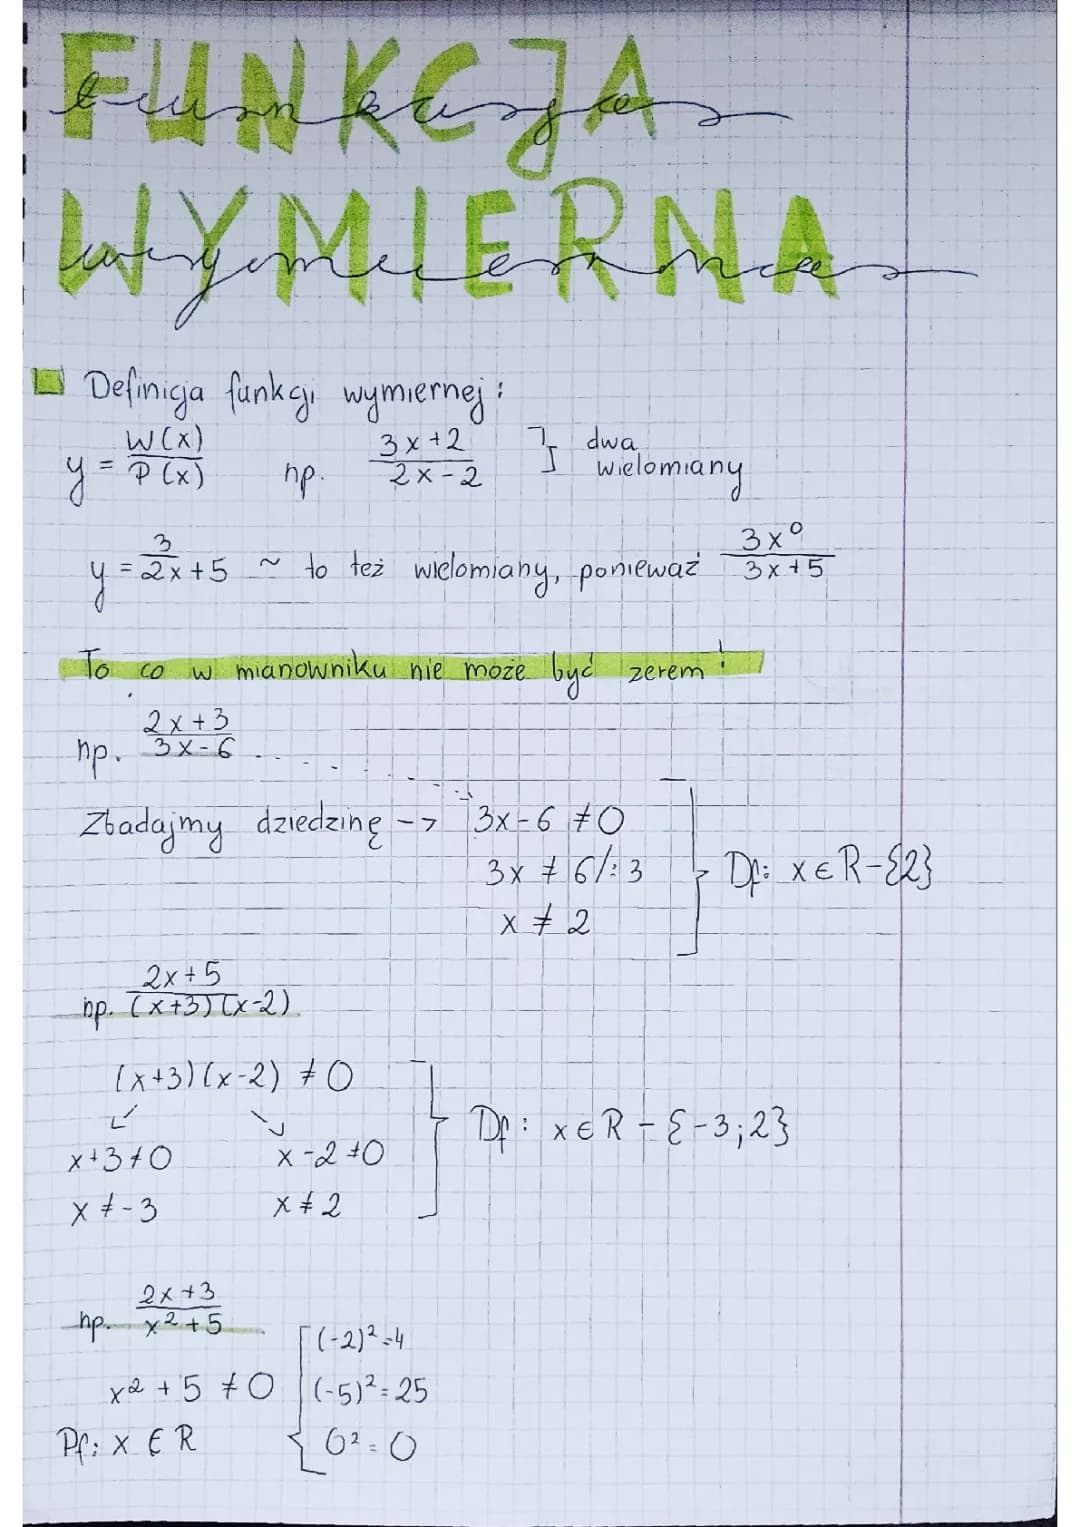 FUNKCJA
funkcja
WYMIERNA
wymierna
Definicja funkcji wymiernej:
y = W(x)/P(x) np. 3x+2/2x-2 ] dwa wielomiany
y = 3/2x+5 ~ to też wielomiany, ponieważ 3x⁰/3x+5
To co w mianowniku nie może być zerem!
np. 2x+3/3x-6
Zbadajmy dziedzinę --> 3x-6 ≠ 0
3x ≠ 6/:3
Df: x∈R-{2}
x ≠ 2
np. 2x+5/(x+3)(x-2)
(x+3)(x-2) ≠ 0
Df: x∈R-{-3;2}
x+3≠0 x-2≠0
x≠-3 x≠2
np. 2x+3/x²+5
(-2)²=4
x²+5 ≠ 0 (-5)²=25
Df: x ∈ R 0²=0